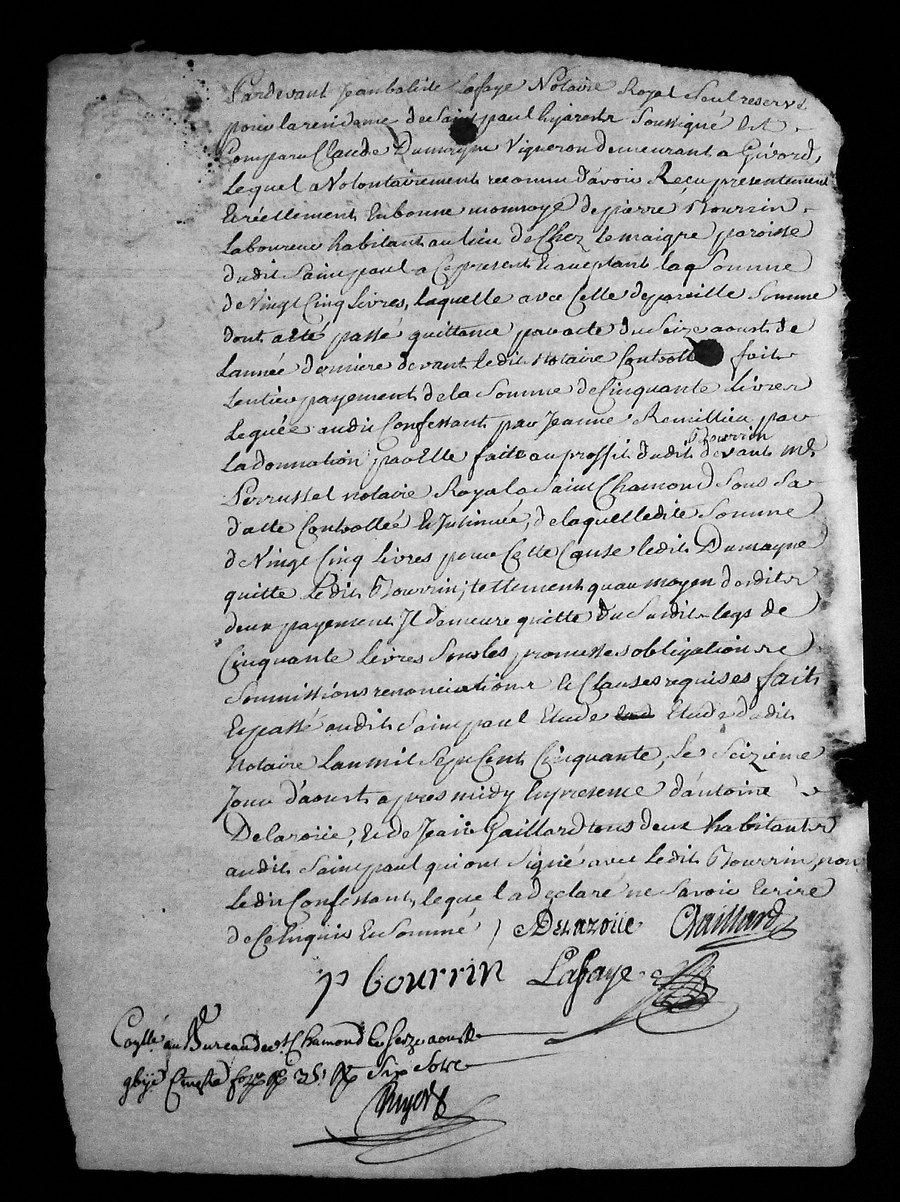 Pardevant Jeanbatiste Lafaye Notaire Royal Seul reservé
pour la residance de Saint paul En jarestz Soussigné Est
Comparu Claude Dumayne Vigneron demeurant a Givord,
Lequel a Volontairement reconnu d'avoir Reçu présentement
Et réellement En bonne monnoye de pierre Bourrin
Laboureur habitant au lieu de Chez Lemaigre paroisse
dudit Saint paul a Ce present Et aceptant la Somme
de Vingt Cinq Livres, laquelle avec Celle de pareille Somme
dont a été passé quittance par acte du Seize aoust de
L'année derniere devant Ledit Notaire Controllé fait
L'entier payement de la Somme de Cinquante Livres
Leguée audit Confessant par Jeanne Remillieu par
La donnation par Elle faite au proffit dudit Bourrin devant me
Perrussel notaire Royal a Saint Chamond Sous Sa
datte Controllée Et Insinuée, de laquelledite Somme
de Vingt Cinq Livres pour Cette Cause ledit Dumayne
quitte Ledit Bourrin, tellement quau moyen desdits
deux payements Il demeure quitte du Susdit legs de
Cinquante Livres Sous les promesses obligations
Soumissions renonciations Et Clauses requises fait
Et passé audit Saint paul Etude Etude dudit
Notaire L'an mil Sept Cent Cinquante, Le Seizieme
Jour d'aoust apres midy En presence d'antoine
Delaroüe, Et de Jean Gaillard tous deux habitants
audit Saint paul qui ont Signé avec Ledit Bourrin, non
Ledit Confessant, lequel a declaré ne Savoir Ecrire
de Ce Enquis Et Sommé / ADELAROÜE Gaillard
p bourrin Lafaye
au Bureau de St Chamond le seize aoust
Cinqte six sols